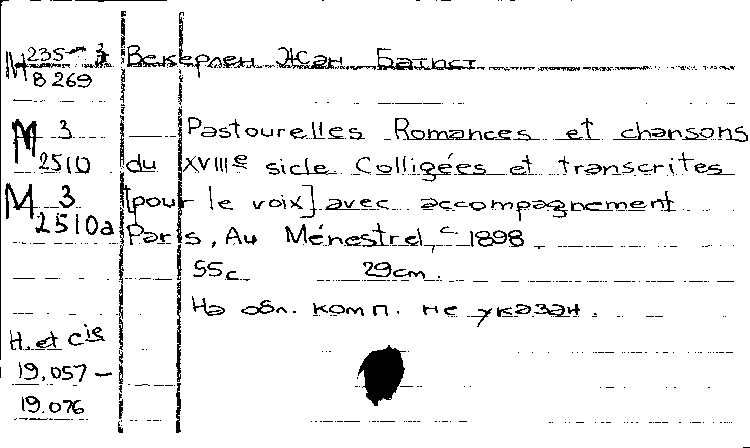 М 235-3 Векерлен Жан Батист
8269
М 3 Pastourelles Romances et chansons
2510 du XVIIIe sicle Colligées et transcrites
М 3 [pour le voix] avec accompagnement
2510a Paris, Au Ménestrel, c 1898.
55c 29cm.
На обл. комп. не указан.
H. et cie
19,057 –
19.076